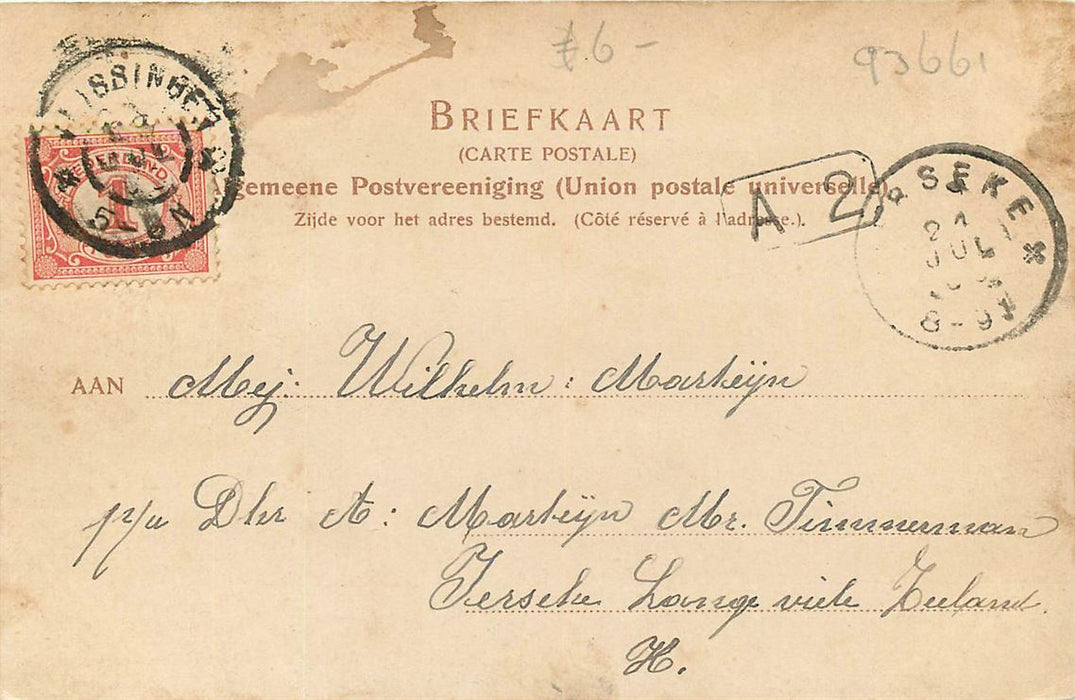 £6-
93661
VLISSINGEN
5
N
BRIEFKAART
(CARTE POSTALE)
Algemeene Postvereeniging (Union postale universelle).
Zijde voor het adres bestemd. (Côté réservé à l'adresse.).
A 2
SEKE
21
JUL
8-9V
AAN Mej: Wilhelm: Martijn
p/a Dhr A: Martijn Mr. Timmerman
Ierseke Lange viele Zeeland.
H.